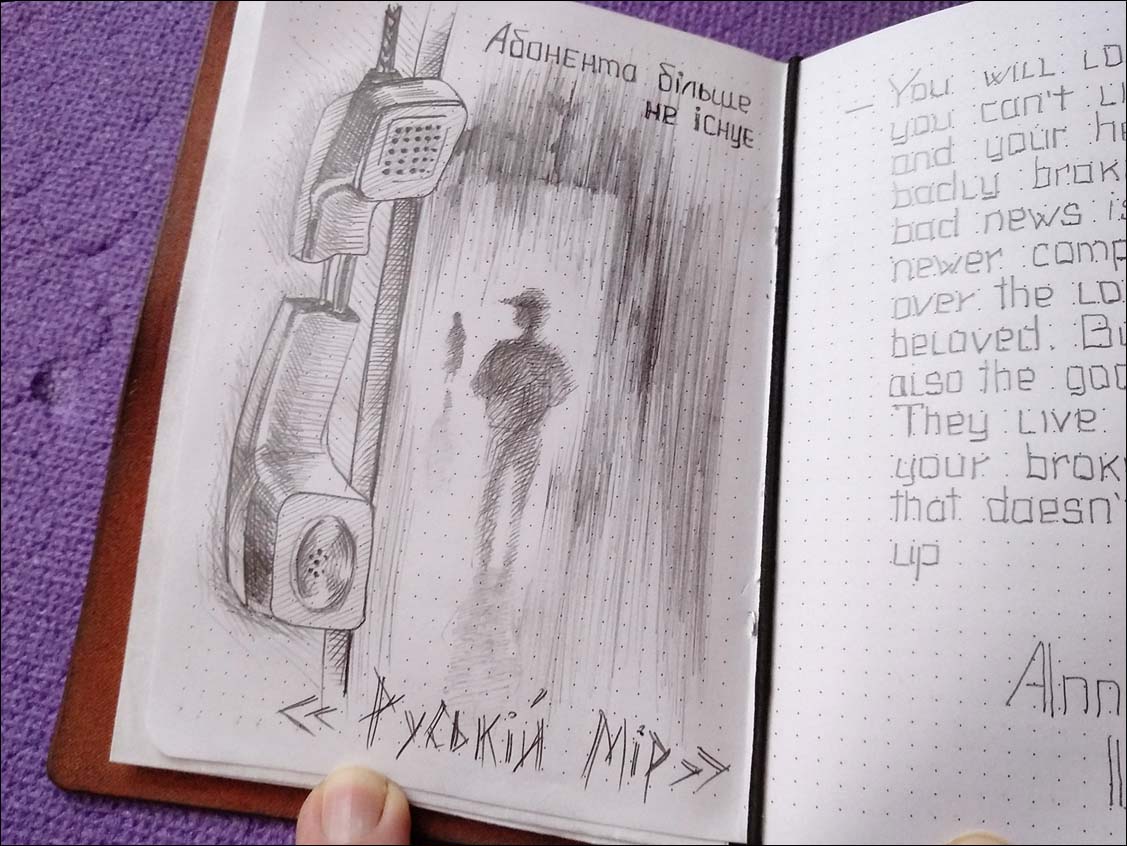 Абонента більше
не існує
<< Руській Мір>>
— You will lo
you can't li
and your he
badly brok
bad news is
newer comp
over the lo
beloved. Bu
also the goo
They live
your brok
that doesn'
up
Ann